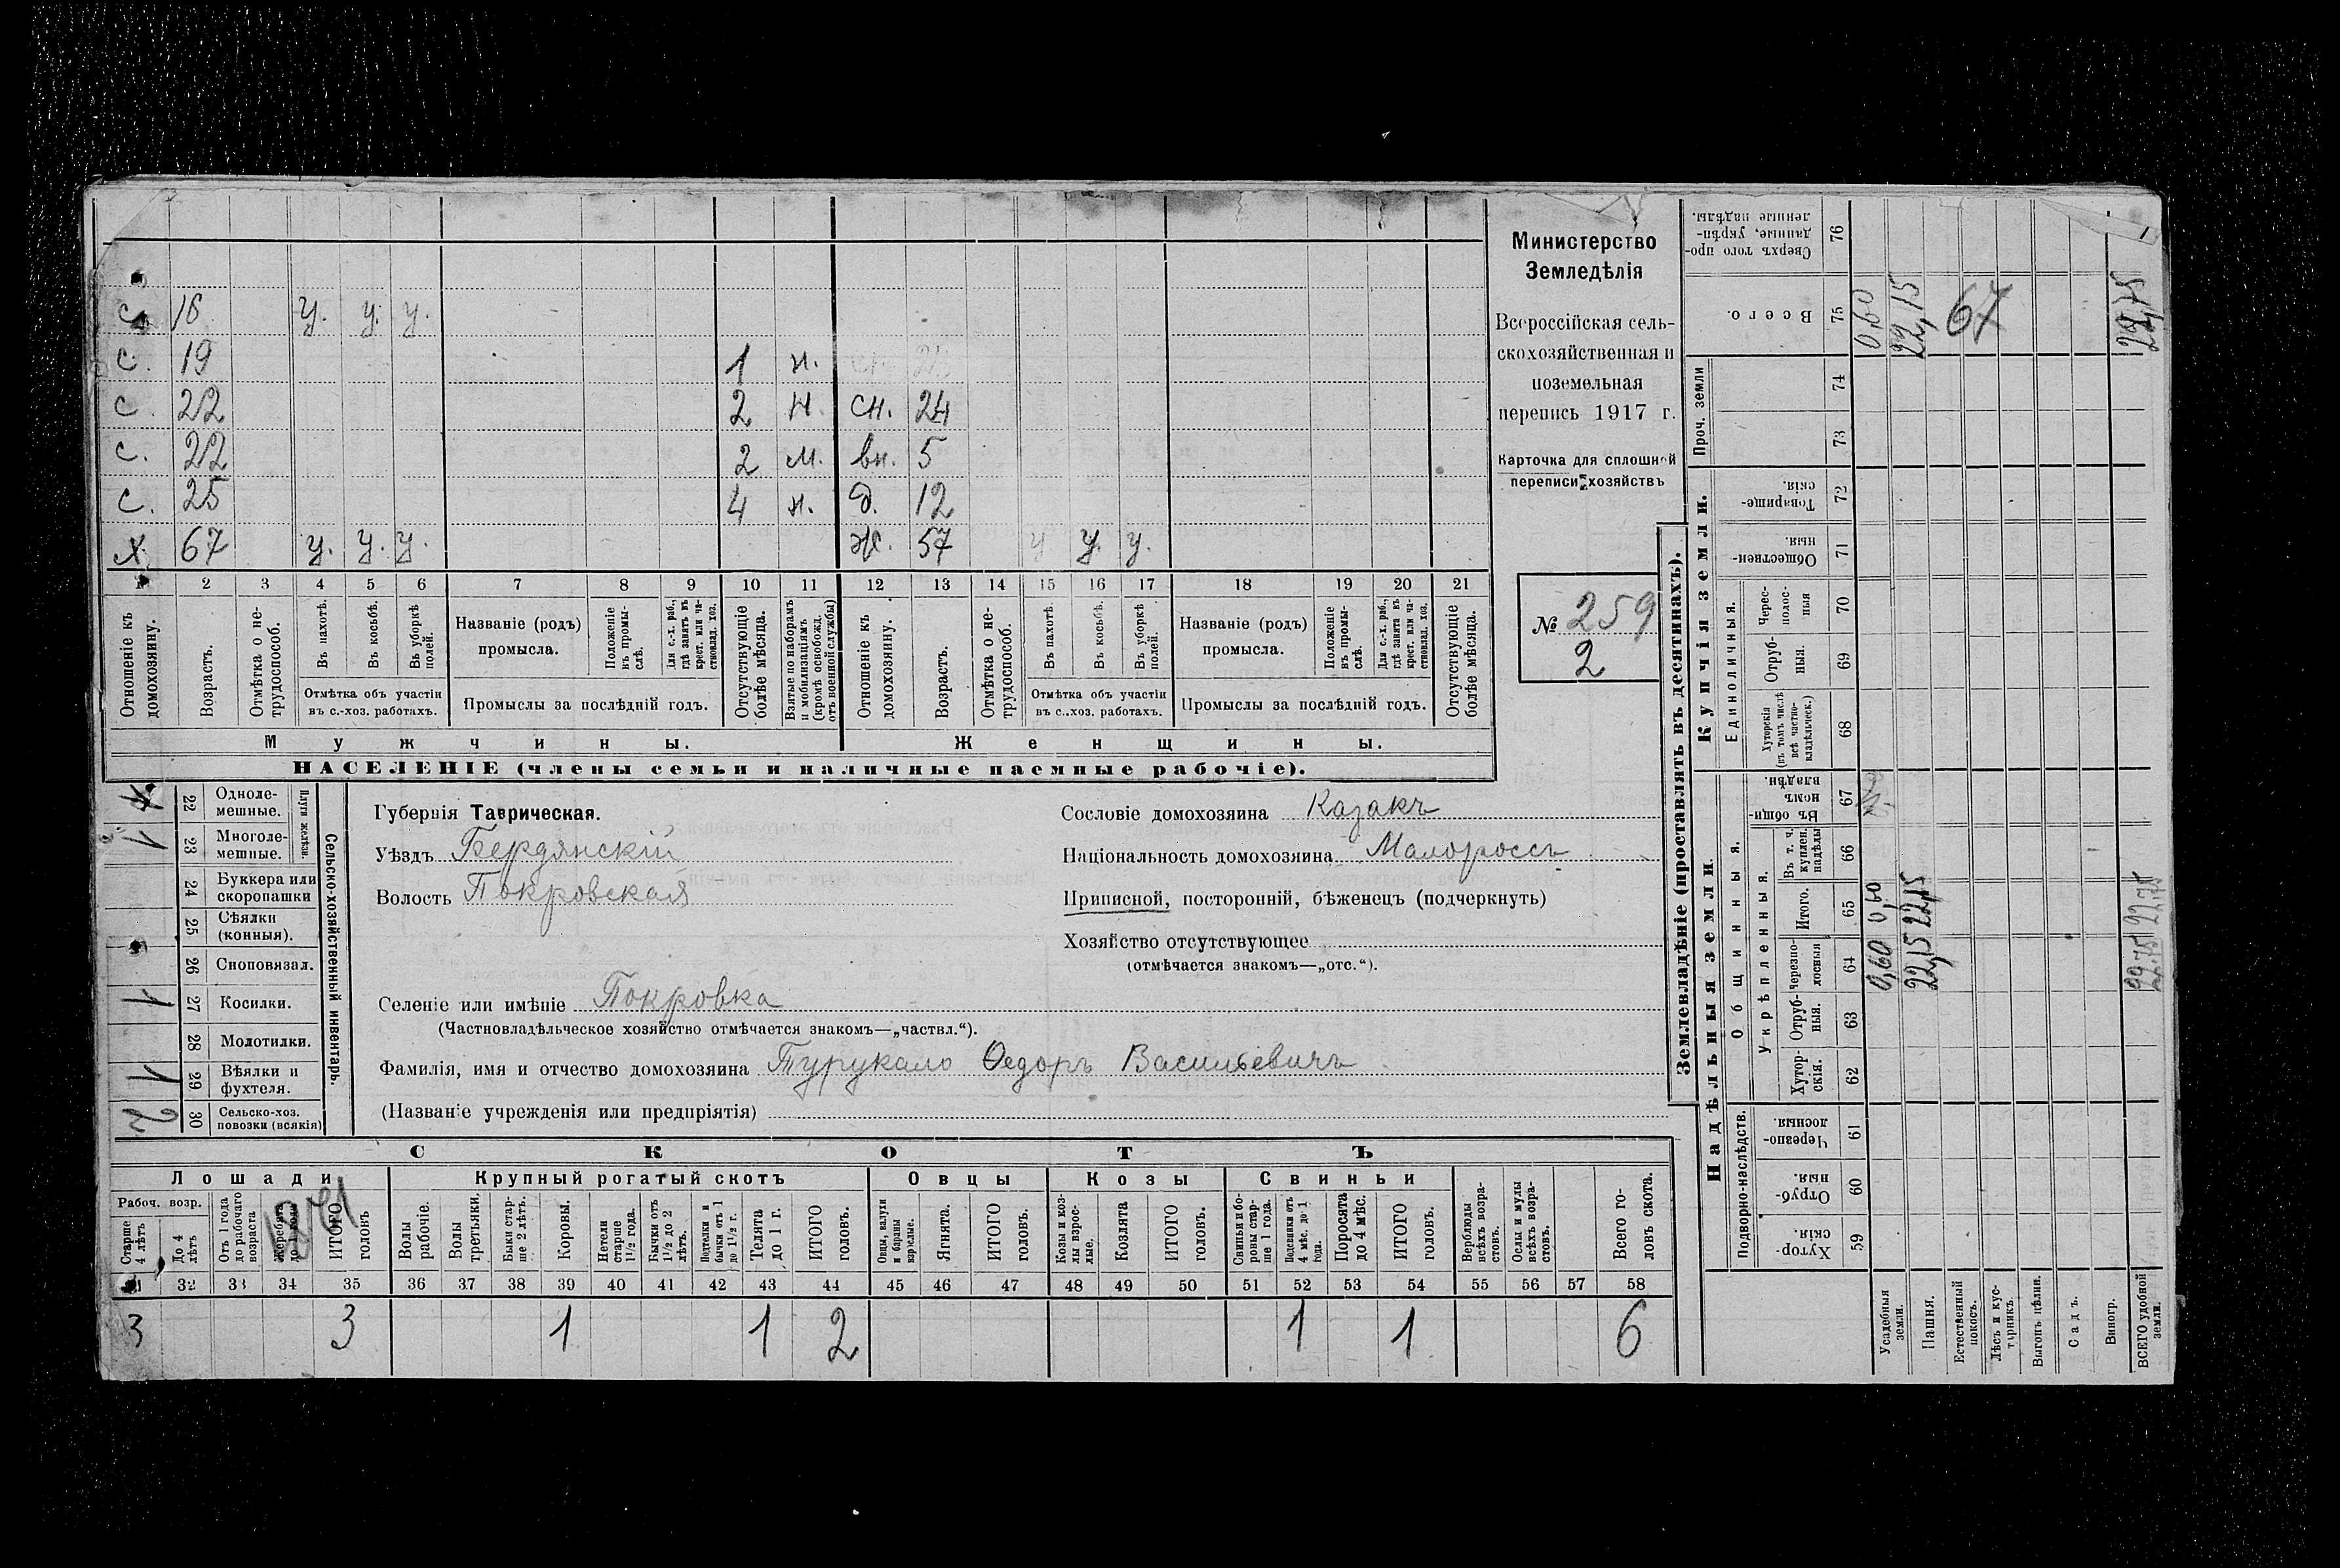 с. 16 у. у. у.
с. 19 1 н.
с. 22 2 н. сн. 24
с. 22 2 м. вн. 5
с. 25 4 н. д. 12
х. 67 у. у. у. ж. 57 у у. у.
1 2 3 4 5 6 7 8 9 10 11 12 13 14 15 16 17 18 19 20 21
Отношеніе къ домохозяину.
Возрастъ.
Отмѣтка о не-трудоспособ.
Въ пахотѣ.
Въ косьбѣ.
Въ уборкѣ полей.
Отмѣтка объ участіи въ с.-хоз. работахъ.
Названіе (родъ) промысла.
Положеніе въ промы-слѣ.
Для с.-х. раб., гдѣ занятъ въ крест. или ча-стновлад. хоз.
Промыслы за послѣдній годъ.
Отсутствующіе болѣе мѣсяца.
Взятые по наборамъ и мобилизаціямъ (кромѣ освобожд. отъ военной службы)
Отношеніе къ домохозяину.
Возрастъ.
Отмѣтка о не-трудоспособ.
Въ пахотѣ.
Въ косьбѣ.
Въ уборкѣ полей.
Отмѣтка объ участіи въ с.-хоз. работахъ.
Названіе (родъ) промысла.
Положеніе въ промы-слѣ.
Для с.-х. раб., гдѣ занята въ крест. или ча-стновлад. хоз.
Промыслы за послѣдній годъ.
Отсутствующіе болѣе мѣсяца.
Мужчины. Женщины.
НАСЕЛЕНІЕ (члены семьи и наличные наемные рабочіе).
Министерство
Земледѣлія
Всероссійская сель-
скохозяйственная и
поземельная
перепись 1917 г.
Карточка для сплошной
переписи хозяйствъ
№ 259
2
22 Одноле-мешные.
1 23 Многоле-мешные.
Плуги желѣзн.
24 Буккера или скоропашки
25 Сѣялки (конныя).
26 Сноповязал.
1 27 Косилки.
28 Молотилки.
1 29 Вѣялки и фухтеля.
2 30 Сельско-хоз. повозки (всякія)
Сельско-хозяйственный инвентарь.
Губернія Таврическая.
Уѣздъ Бердянскій
Волость Покровская
Сословіе домохозяина Казакъ
Національность домохозяина Малороссъ
Приписной, посторонній, бѣженец (подчеркнуть)
Хозяйство отсутствующее
(отмѣчается знакомъ—„отс.“).
Селеніе или имѣніе Покровка
(Частновладѣльческое хозяйство отмѣчается знакомъ—„частвл.“).
Фамилія, имя и отчество домохозяина Турукало Ѳедоръ Васильевичъ
(Названіе учрежденія или предпріятія)
СКОТЪ
Лошади Крупный рогатый скотъ Овцы Козы Свиньи
Рабоч. возр.
Старше 4 лѣтъ
До 4 лѣтъ
Отъ 1 года до рабочаго возраста
Жеребята до 1 года
ИТОГО головъ
Волы рабочіе.
Волы третьяки.
Быки стар-ше 2 лѣтъ.
Коровы.
Нетели старше 1½ года.
Бычки отъ 1½ до 2 лѣтъ.
Подтелки и бычки отъ 1 до 1½ г.
Телята до 1 г.
ИТОГО головъ.
Овцы, валухи и бараны взрослые.
Ягнята.
ИТОГО головъ.
Козы и коз-лы взрос-лые.
Козлята
ИТОГО головъ.
Свиньи и бо-ровы стар-ше 1 года.
Подсвинки отъ 4 мѣс. до 1 года.
Поросята до 4 мѣс.
ИТОГО головъ.
Верблюды всѣхъ возра-стовъ.
Ослы и мулы всѣхъ возра-стовъ.
Всего го-ловъ скота.
32 33 34 35 36 37 38 39 40 41 42 43 44 45 46 47 48 49 50 51 52 53 54 55 56 57 58
3 3 1 1 2 1 1 6
Землевладѣніе (проставлять въ десятинахъ).
Надѣльныя земли. Купчія земли.
Подворно-наслѣдств.
Общинныя.
Укрѣпленныя.
Единоличныя.
Проч. земли
Хутор-скія. 59
Отруб-ныя. 60
Черезпо-лосныя 61
Хутор-скія. 62
Отруб-ныя. 63
Черезпо-лосныя 64
Итого. 65
Въ т. ч. куплен. надѣлы 66
Въ общин-номъ владѣн. 67
Хуторскія (въ томъ числѣ всѣ частно-владѣльческ.) 68
Отруб-ныя. 69
Черес-полос-ныя 70
Обществен-ныя 71
Товарище-скія. 72
73 74
Всего. 75
Сверхъ того про-данные, укрѣп-ленные надѣлы. 76
Усадебныя земли. 0,60 0,60 0,60
Пашня. 22,15 22,15 22,15
Естественный покосъ. 67
Лѣсъ и кус-тарникъ.
Выгонъ цѣлин.
Садъ.
Виногр.
ВСЕГО удобной земли. 22,75 22,75 22,75